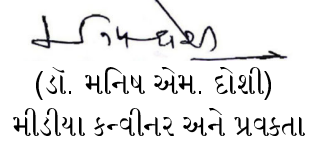 (ડૉ. મનિષ એમ. દોશી)
મીડીયા કન્વીનર અને પ્રવક્તા